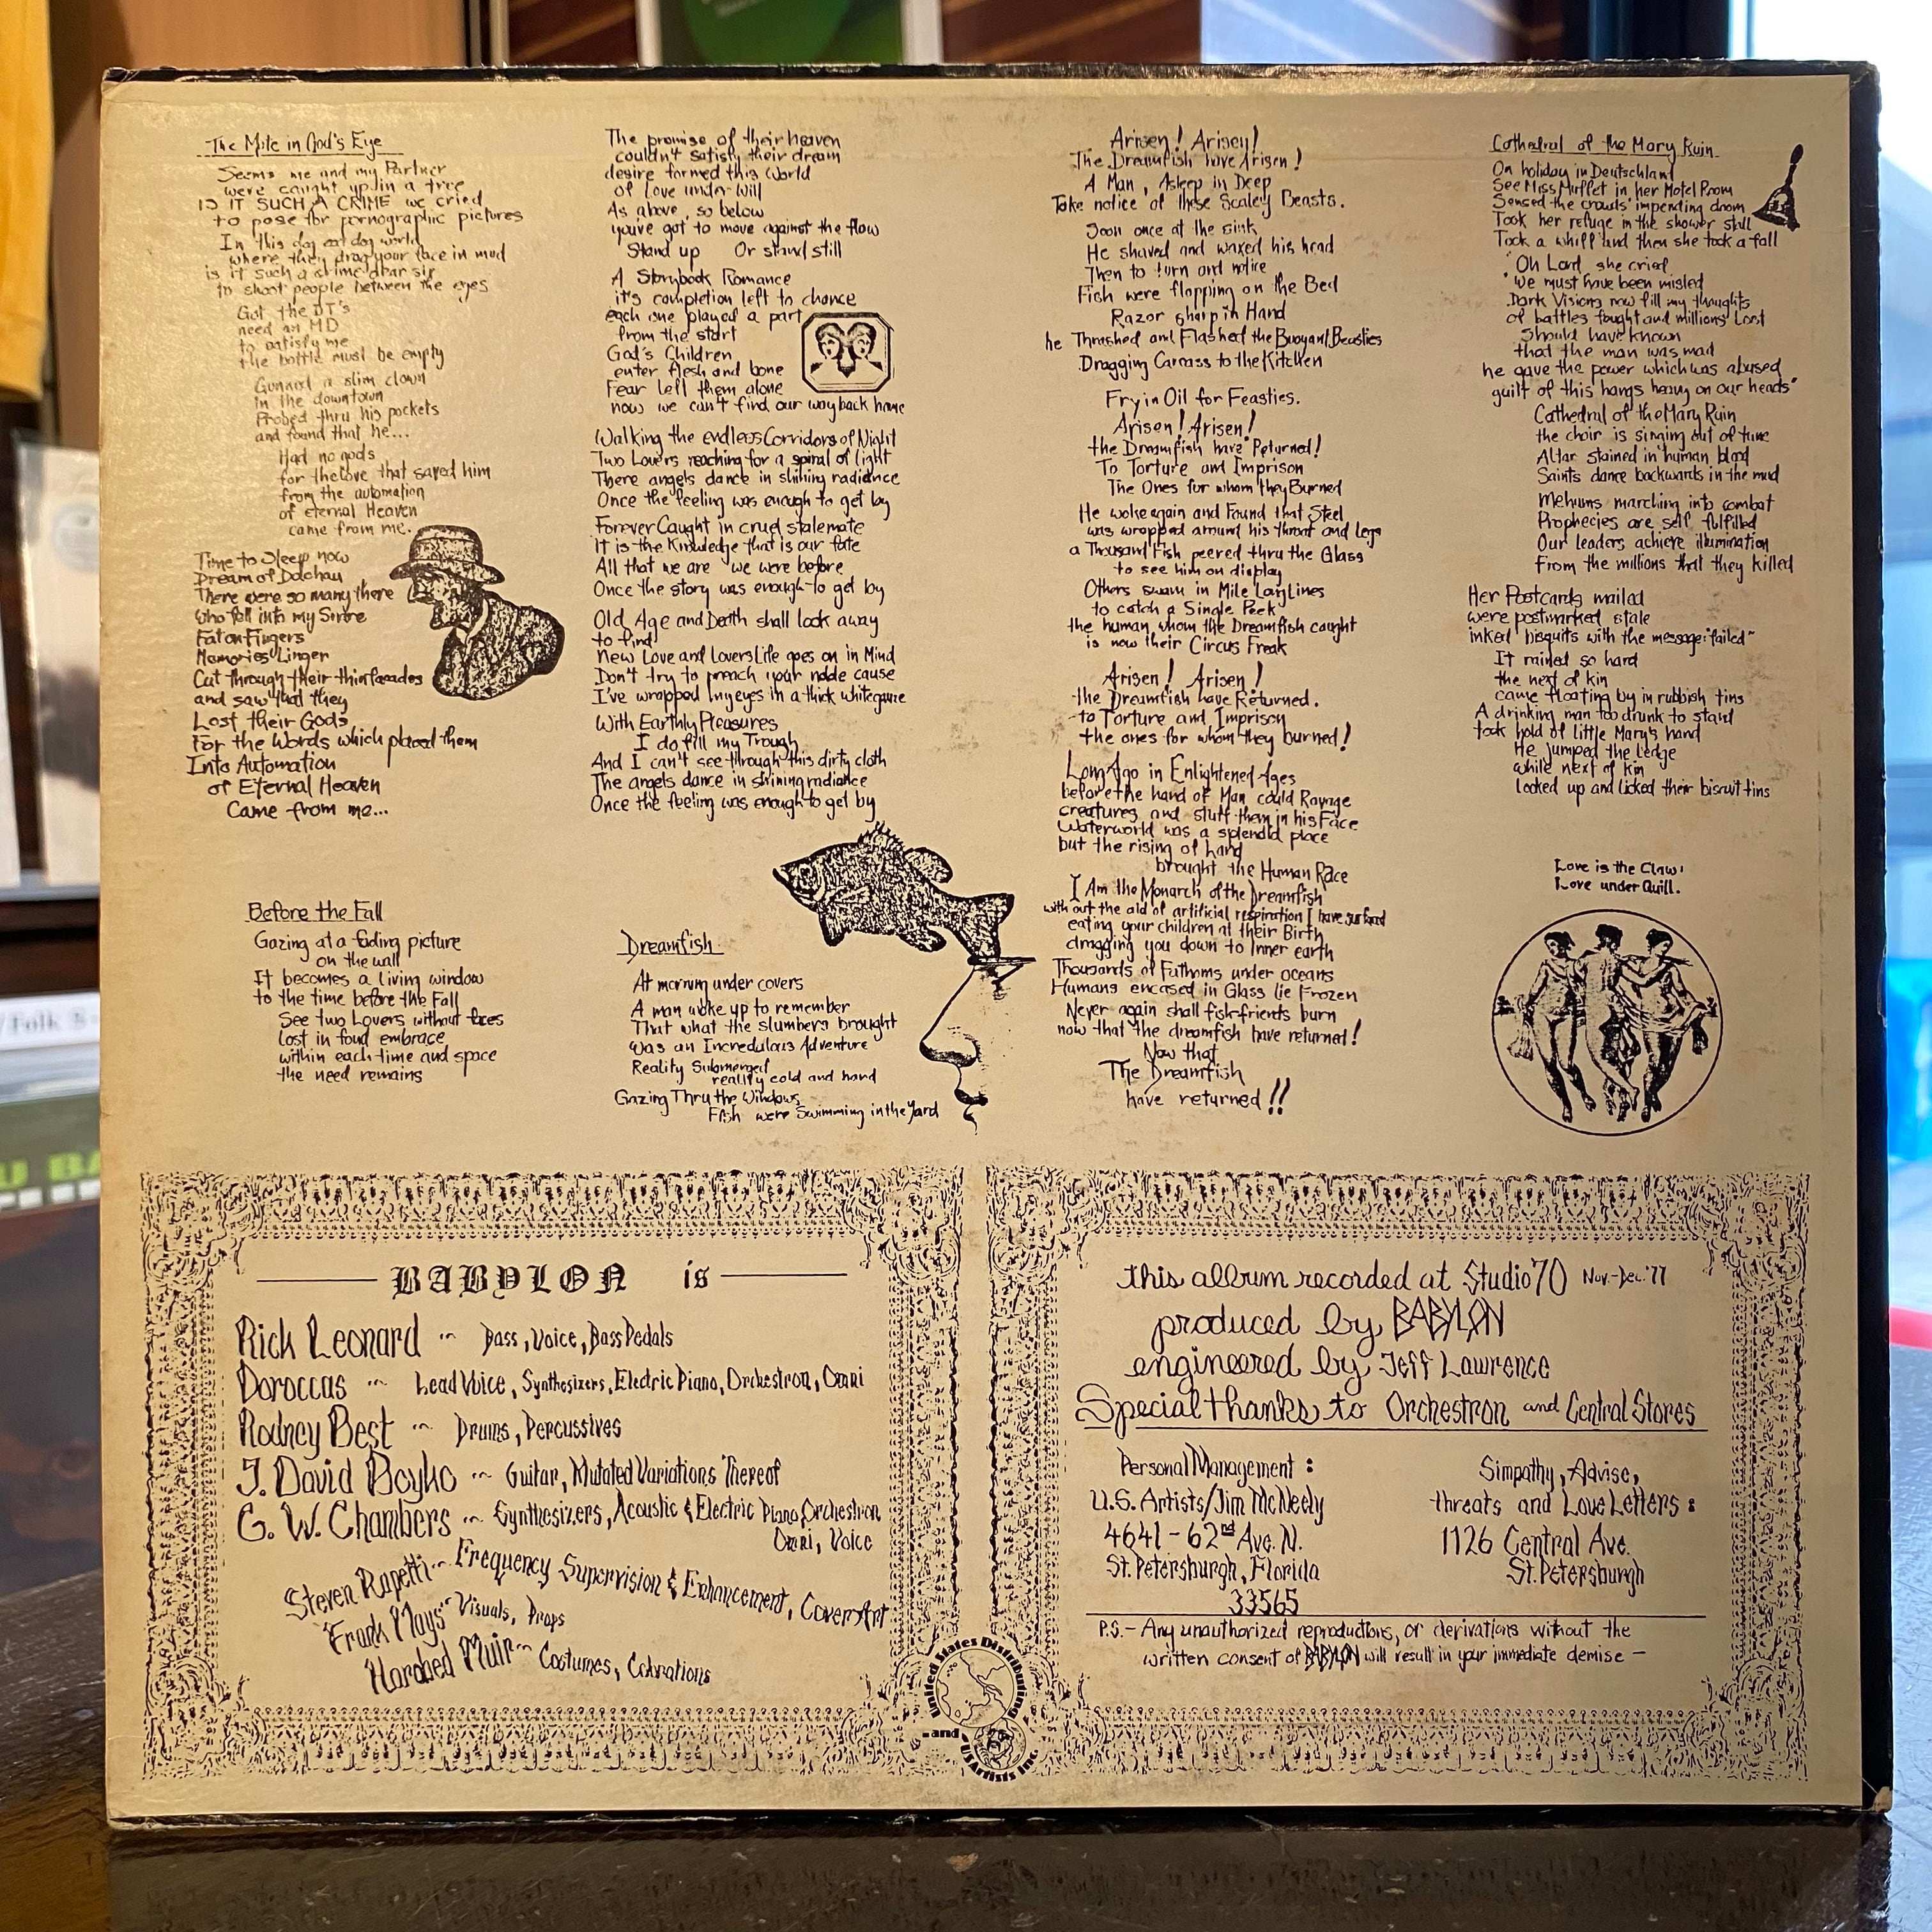 The Mile in God's Eye
Seems me and my Partner
were caught up in a tree
IS IT SUCH A CRIME we cried
to pose for pornographic pictures
In this dog eat dog world
where they drag your face in mud
is it such a crime dear sir
to shoot people between the eyes
Got the DT's
need an MD
to satisfy me
the bottle must be empty
Gunned a slim clown
in the downtown
Probed thru his pockets
and found that he...
Had no gods
for the love that saved him
from the automation
of eternal Heaven
came from me.
Time to Sleep now
Dream of Dachau
There were so many there
who fell into my
Eat on Fingers
Memories Linger
Cut through their thin facades
and saw that they
Lost their Gods
For the Words which placed them
Into Automation
of Eternal Heaven
Came from me...
Before the Fall
Gazing at a fading picture
on the wall
It becomes a living window
to the time before the Fall
See two Lovers without faces
lost in foud embrace
within each time and space
the need remains
The promise of their heaven
couldn't satisfy their dream
desire formed this World
of Love under Will
As above, so below
youve got to move against the flow
Stand up Or stand still
A Storybook Romance
it's completion left to chance
each one played a part
from the start
God's Children
enter flesh and bone
Fear left them alone
now we can't find our way back home
Walking the endless Corridors of Night
Two Lovers reaching for a spiral of light
There angels dance in shining radiance
Once the feeling was enough to get by
Forever Caught in cruel stalemate
It is the Knowledge that is our fate
All that we are we were before
Once the story was enough to get by
Old Age and Death shall look away
to find
New Love and Lovers Life goes on in Mind
Don't try to preach your noble cause
I've wrapped my eyes in a thick white gauze
With Earthly Pleasures
I do fill my Trough
And I can't see through this dirty cloth
The angels dance in shining radiance
Once the feeling was enough to get by
Dreamfish
At morning under covers
A man woke up to remember
That what the slumbers brought
Was an Incredulous Adventure
Reality Submerged
reality cold and hard
Gazing Thru the Windows
Fish were Swimming in the Yard
Arisen! Arisen!
The Dreamfish have Arisen!
A Man, Asleep in Deep
Take notice of these Scaley Beasts.
Soon once at the sink
He shaved and waxed his head
Then to turn and notice
Fish were flopping on the Bed
Razor sharp in Hand
he Thrashed and Flashed the Buoyant Beasties
Dragging Carcass to the Kitchen
Fry in Oil for Feasties.
Arisen! Arisen!
the Dreamfish have Returned!
To Torture and Imprison
The Ones for whom they Burned
He woke again and Found that Steel
was wrapped around his throat and legs
a Thousand Fish peered thru the Glass
to see him on display
Others swam in Mile Long Lines
to catch a Single Peek
the human whom the Dreamfish caught
is now their Circus Freak
Arisen! Arisen!
the Dreamfish have Returned.
to Torture and Imprison
the ones for whom they burned!
Long Ago in Enlightened Ages
before the hand of Man could Ravage
creatures and stuff them in his Face
Waterworld was a splendid place
but the rising of land
brought the Human Race
I Am the Monarch of the Dreamfish
with out the aid of artificial respiration I have surfaced
eating your children at their Birth
dragging you down to Inner earth
Thousands of Fathoms under oceans
Humans encased in Glass lie Frozen
Never again shall fish-friends burn
now that the dreamfish have returned!
Now that
The Dreamfish
have returned!!
Cathedral of the Mary Ruin
On holiday in Deutschland
See Miss Muffet in her Motel Room
Sensed the crowds' impending doom
Took her refuge in the shower stall
Took a whiff and then she took a fall
"Oh Lord she cried
"we must have been misled
Dark Visions now fill my thoughts
of battles fought and millions Lost
Should have known
that the man was mad
he gave the power which was abused
guilt of this hangs heavy on our heads"
Cathedral of the Mary Ruin
the choir is singing out of tune
Altar stained in human blood
Saints dance backwards in the mud
Mehums marching into combat
Prophecies are self fulfilled
Our leaders achieve illumination
from the millions that they killed
Her Postcards mailed
were postmarked stale
inked bisquits with the message:"failed"
It rained so hard
the next of kin
came floating by in rubbish tins
A drinking man too drunk to stand
took hold of little Mary's hand
He jumped the ledge
while next of kin
looked up and licked their biscuit tins
Love is the Claw:
Love under Quill.
BABYLON is
Rick Leonard ~ Bass, Voice, Bass Pedals
Doroccas ~ Lead Voice, Synthesizers, Electric Piano, Orchestron, Omni
Rodney Best ~ Drums, Percussives
J. David Boyko ~ Guitar, Mutated Variations Thereof
G. W. Chambers ~ Synthesizers, Acoustic & Electric Piano, Orchestron
Omni, Voice
Steven Rapetti ~ Frequency Supervision & Enhancement, Cover Art
"Frank Mays" Visuals, Props
"Harched Muir" ~ Costumes, Cobrations
this album recorded at Studio 70 Nov.-Dec. '77
produced by BABYLON
engineered by Jeff Lawrence
Special thanks to Orchestron and Central Stores
Personal Management:
U.S. Artists/Jim McNeely
4641 - 62nd Ave. N.
St. Petersburgh, Florida
33565
Simpathy, Advise,
threats and Love Letters:
1126 Central Ave.
St. Petersburgh
P.S. - Any unauthorized reproductions, or derivations without the
written consent of BABYLON will result in your immediate demise -
United States Distributing
-and-
US Artists Inc.
/Folk S-